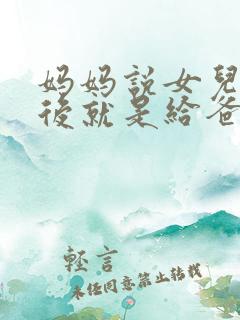 妈妈説女兒
後就是給爸
軽言
未任同意禁止转载